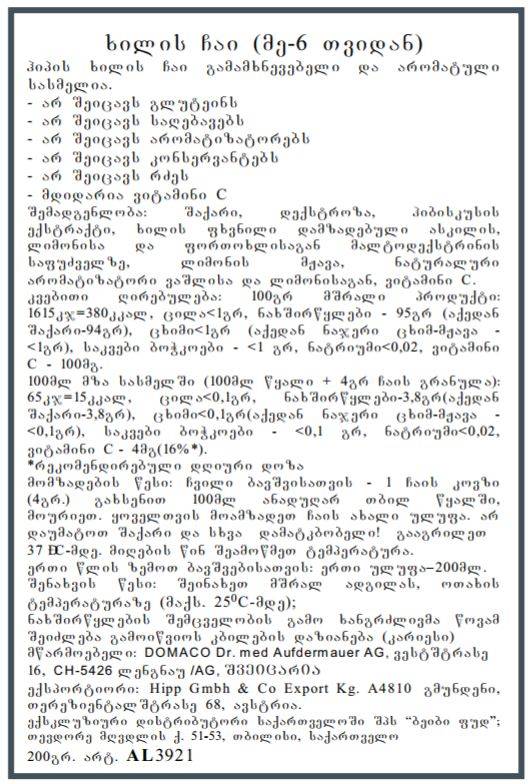 ხილის ჩაი (მე-6 თვიდან)
ჰიპის ხილის ჩაი გამამხნევებელი და არომატული
სასმელია.
- არ შეიცავს გლუტეინს
- არ შეიცავს საღებავებს
- არ შეიცავს არომატიზატორებს
- არ შეიცავს კონსერვანტებს
- არ შეიცავს რძეს
- მდიდარია ვიტამინი C
შემადგენლობა: შაქარი, დექსტროზა, ჰიბისკუსის
ექსტრაქტი, ხილის ფხვნილი დამზადებული ასკილის,
ლიმონისა და ფორთოხლისაგან მალტოდექსტრინის
საფუძველზე, ლიმონის მჟავა, ნატურალური
არომატიზატორი ვაშლისა და ლიმონისაგან, ვიტამინი C.
კვებითი ღირებულება: 100გრ მშრალი პროდუქტი:
1615კჯ=380კკალ, ცილა<1გრ, ნახშირწყლები - 95გრ (აქედან
შაქარი-94გრ), ცხიმი<1გრ (აქედან ნაჯერი ცხიმ-მჟავა -
<1გრ), საკვები ბოჭკოები - <1 გრ, ნატრიუმი<0,02, ვიტამინი
C - 100მგ.
100მლ მზა სასმელში (100მლ წყალი + 4გრ ჩაის გრანულა):
65კჯ=15კკალ, ცილა<0,1გრ, ნახშირწყლები-3,8გრ(აქედან
შაქარი-3,8გრ), ცხიმი<0,1გრ(აქედან ნაჯერი ცხიმ-მჟავა -
<0,1გრ), საკვები ბოჭკოები - <0,1 გრ, ნატრიუმი<0,02,
ვიტამინი C - 4მგ(16%*).
*რეკომენდირებული დღიური დოზა
მომზადების წესი: ჩვილი ბავშვისათვის - 1 ჩაის კოვზი
(4გრ.) გახსენით 100მლ ანადუღარ თბილ წყალში,
მოურიეთ. ყოველთვის მოამზადეთ ჩაის ახალი ულუფა. არ
დაუმატოთ შაქარი და სხვა დამატკბობელი! გააგრილეთ
37 C-მდე. მიღების წინ შეამოწმეთ ტემპერატურა.
ერთი წლის ზემოთ ბავშვებისათვის: ერთი ულუფა–200მლ.
შენახვის წესი: შეინახეთ მშრალ ადგილას, ოთახის
ტემპერატურაზე (მაქს. 25⁰C-მდე);
ნახშირწყლების შემცველობის გამო ხანგრძლივმა წოვამ
შეიძლება გამოიწვიოს კბილების დაზიანება (კარიესი)
მწარმოებელი: DOMACO Dr. med Aufdermauer AG, ვესტშტრასე
16, CH-5426 ლენგნაუ /AG, შვეიცარია
ექსპორტიორი: Hipp Gmbh & Co Export Kg. A4810 გმუნდენი,
თერეზიენტალშტრასე 68, ავსტრია.
ექსკლუზიური დისტრიბუტორი საქართველოში შპს “ბეიბი ფუდ”;
თევდორე მღვდლის ქ. 51-53, თბილისი, საქართველო
200გრ. არტ. AL3921